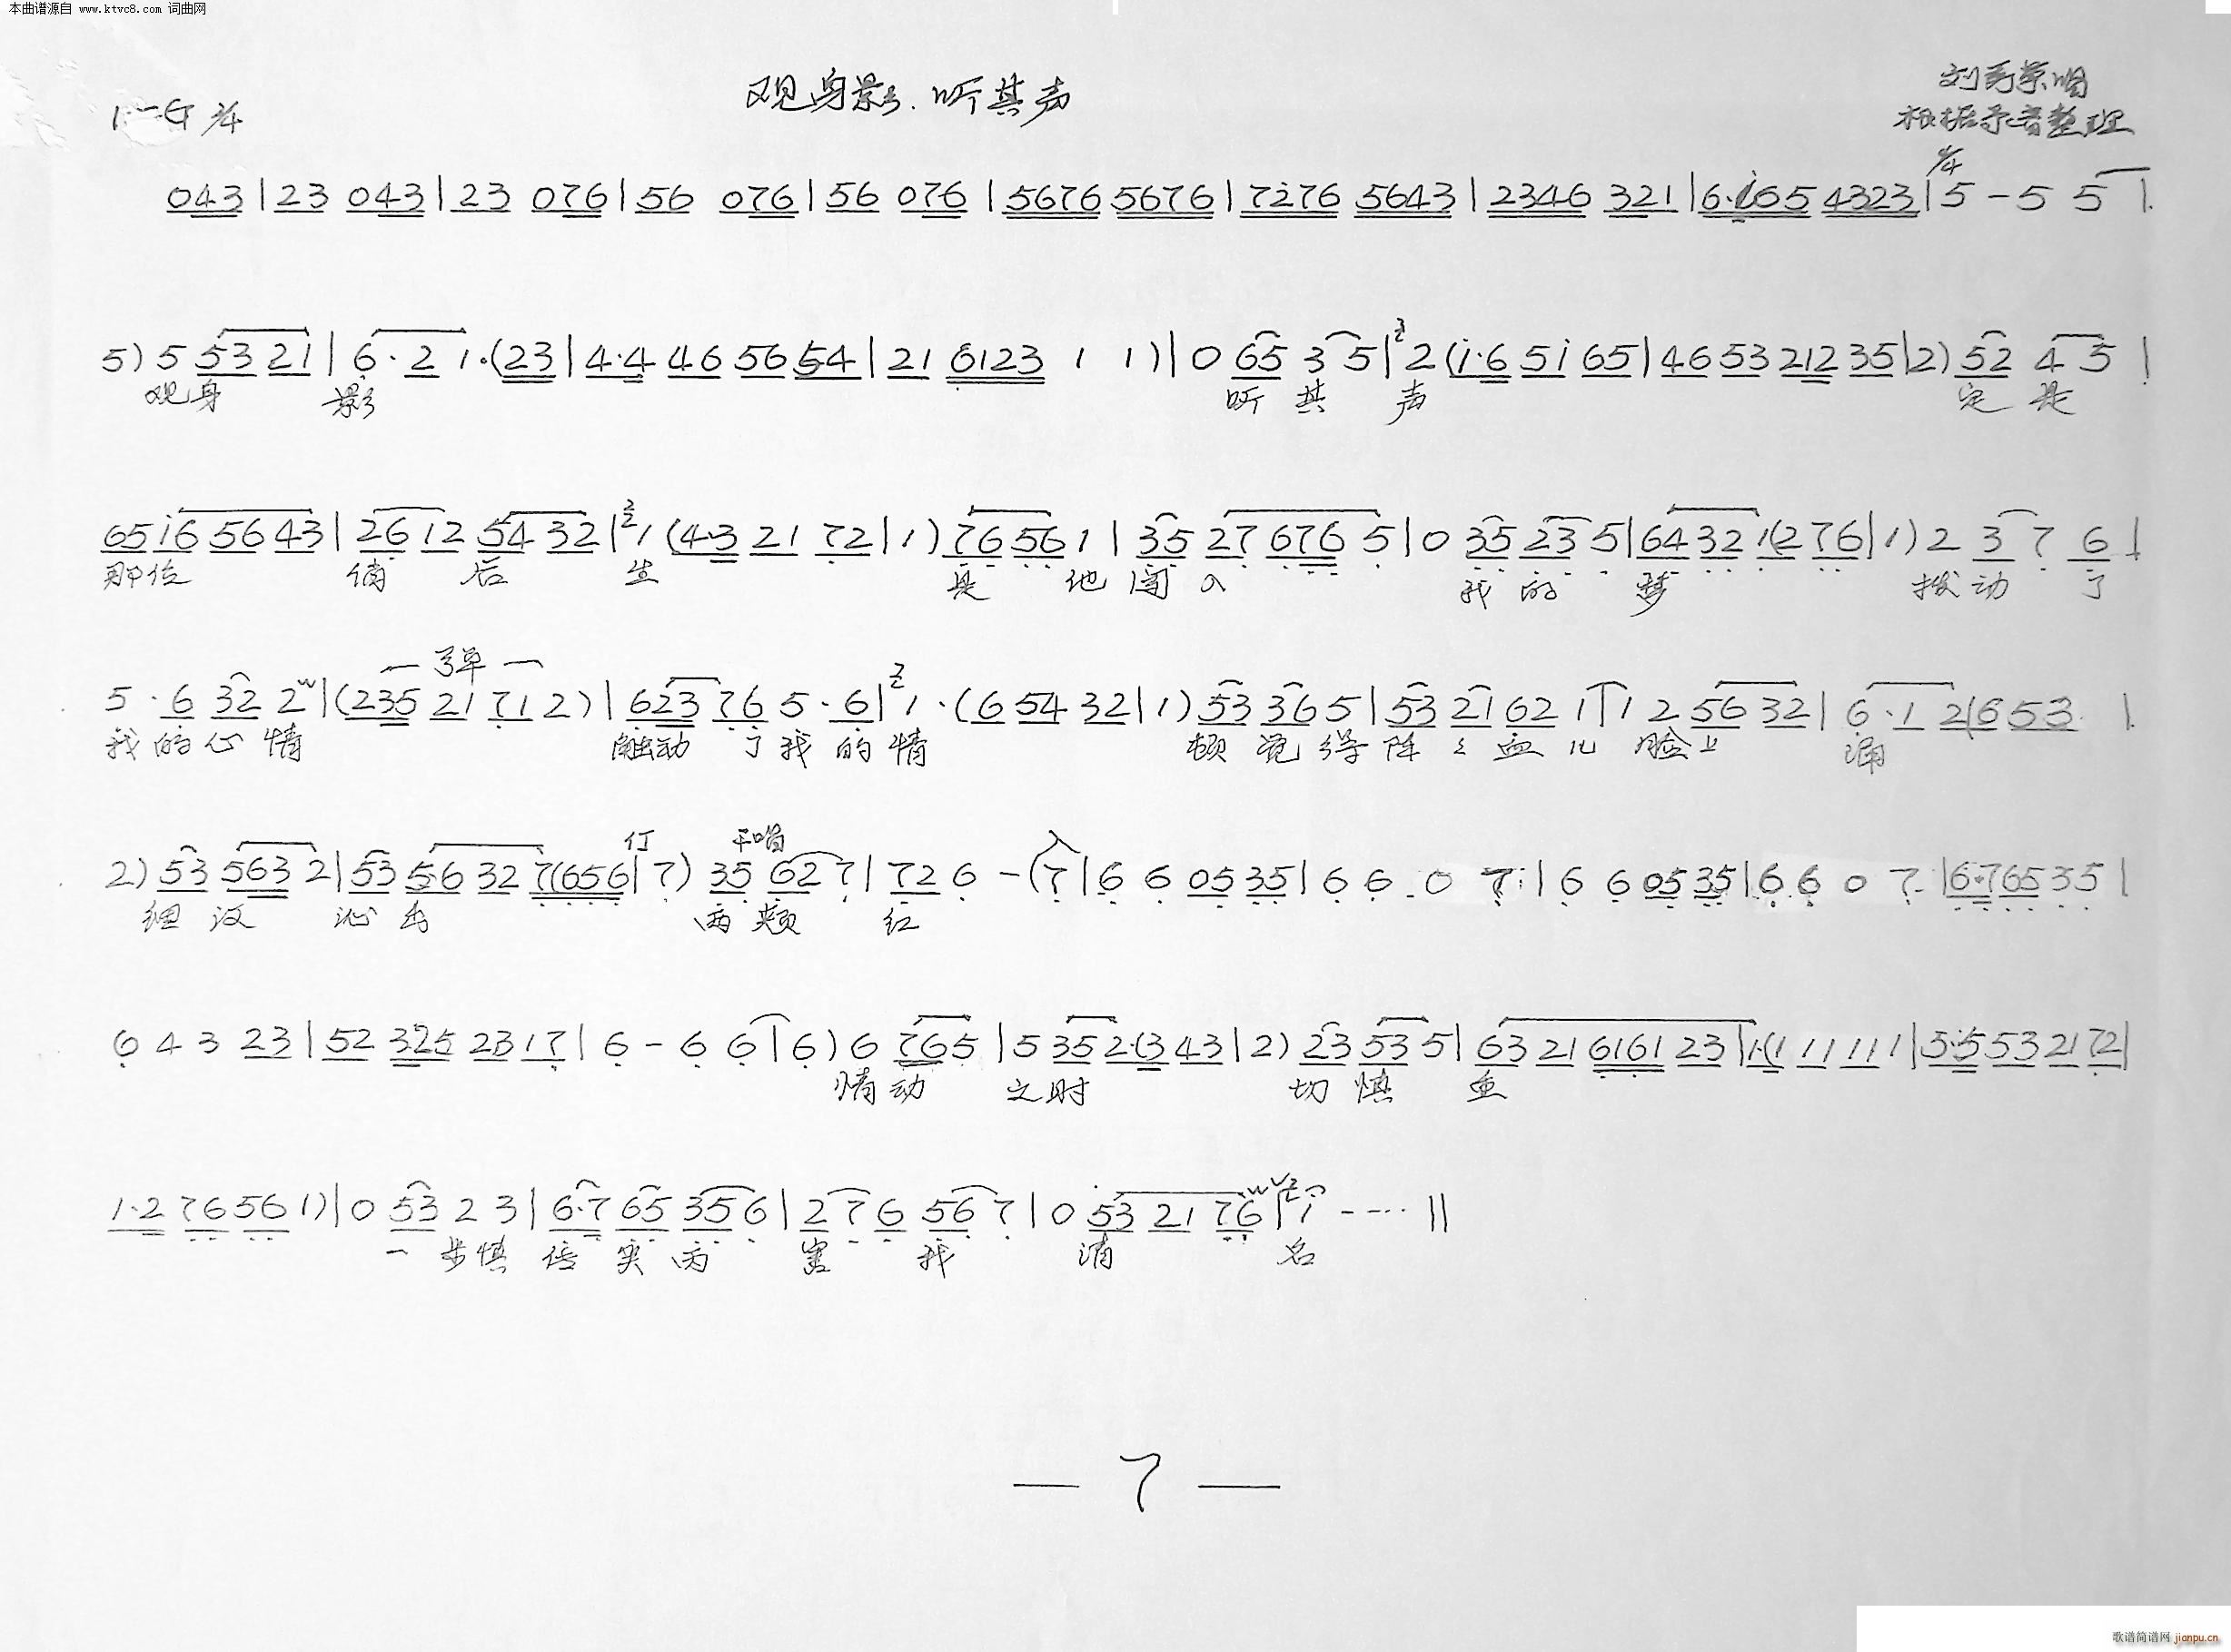 本曲谱源自 www.ktvc8.com 词曲网
观身影.听其声
1=G 2/4
根据录音整理
4/4
043 | 23 043 | 23 076 | 56 076 | 56 076 | 5676 5676 | 7i76 5643 | 2346 321 | 6·i65 4323 | 5 - 5 5 |
5) 5 53 21 | 6· 2 1·(23 | 4·4 46 56 54 | 21 6123 1 1) | 0 65 3 5 | 2 (i·6 5i 65 | 46 53 212 35 | 2) 52 4 5 |
观身 影 听其 声 定是
65 i6 56 43 | 26 12 54 32 | 1 (4·3 21 72 | 1) 76 56 1 | 35 27 676 5 | 0 35 23 5 | 64 32 1(2 76 | 1) 2 3 7 6 |
那位 俏 后 生 是 他闯入 我的 梦 拨动 了
一 弹 一
5 · 6 32 2 | (235 21 71 2) | 623 76 5 · 6 | 1 · (6 54 32 | 1) 53 36 5 | 53 21 62 1 | 1 2 56 32 | 6 · 1 2(6 53 |
我的心情 触动 了我 的情 顿觉得 阵々血儿 脸上 涌
仃 平唱
2) 53 563 2 | 53 5·6 32 7(656 | 7) 35 62 7 | 72 6 - (7 | 6 6 05 35 | 6 6 0 7 | 6 6 05 35 | 6 6 0 7 | 6·765 35 |
细汉 沁出 两颊 红
6 4 3 23 | 52 325 23 17 | 6 - 6 6 | 6) 6 765 | 5 35 2·(3 43 | 2) 23 53 5 | 63 21 6161 23 | 1·(1 11 11 1 | 5·5 53 21 72 |
情动 之时 切慎 重
1·2 76 56 1) | 0 53 2 3 | 6·7 65 35 6 | 2 7 6 56 7 | 0 53 21 76 | i - - - - ||
一步慎 害 我 清 名
— 7 —
歌谱简谱网 jianpu.cn